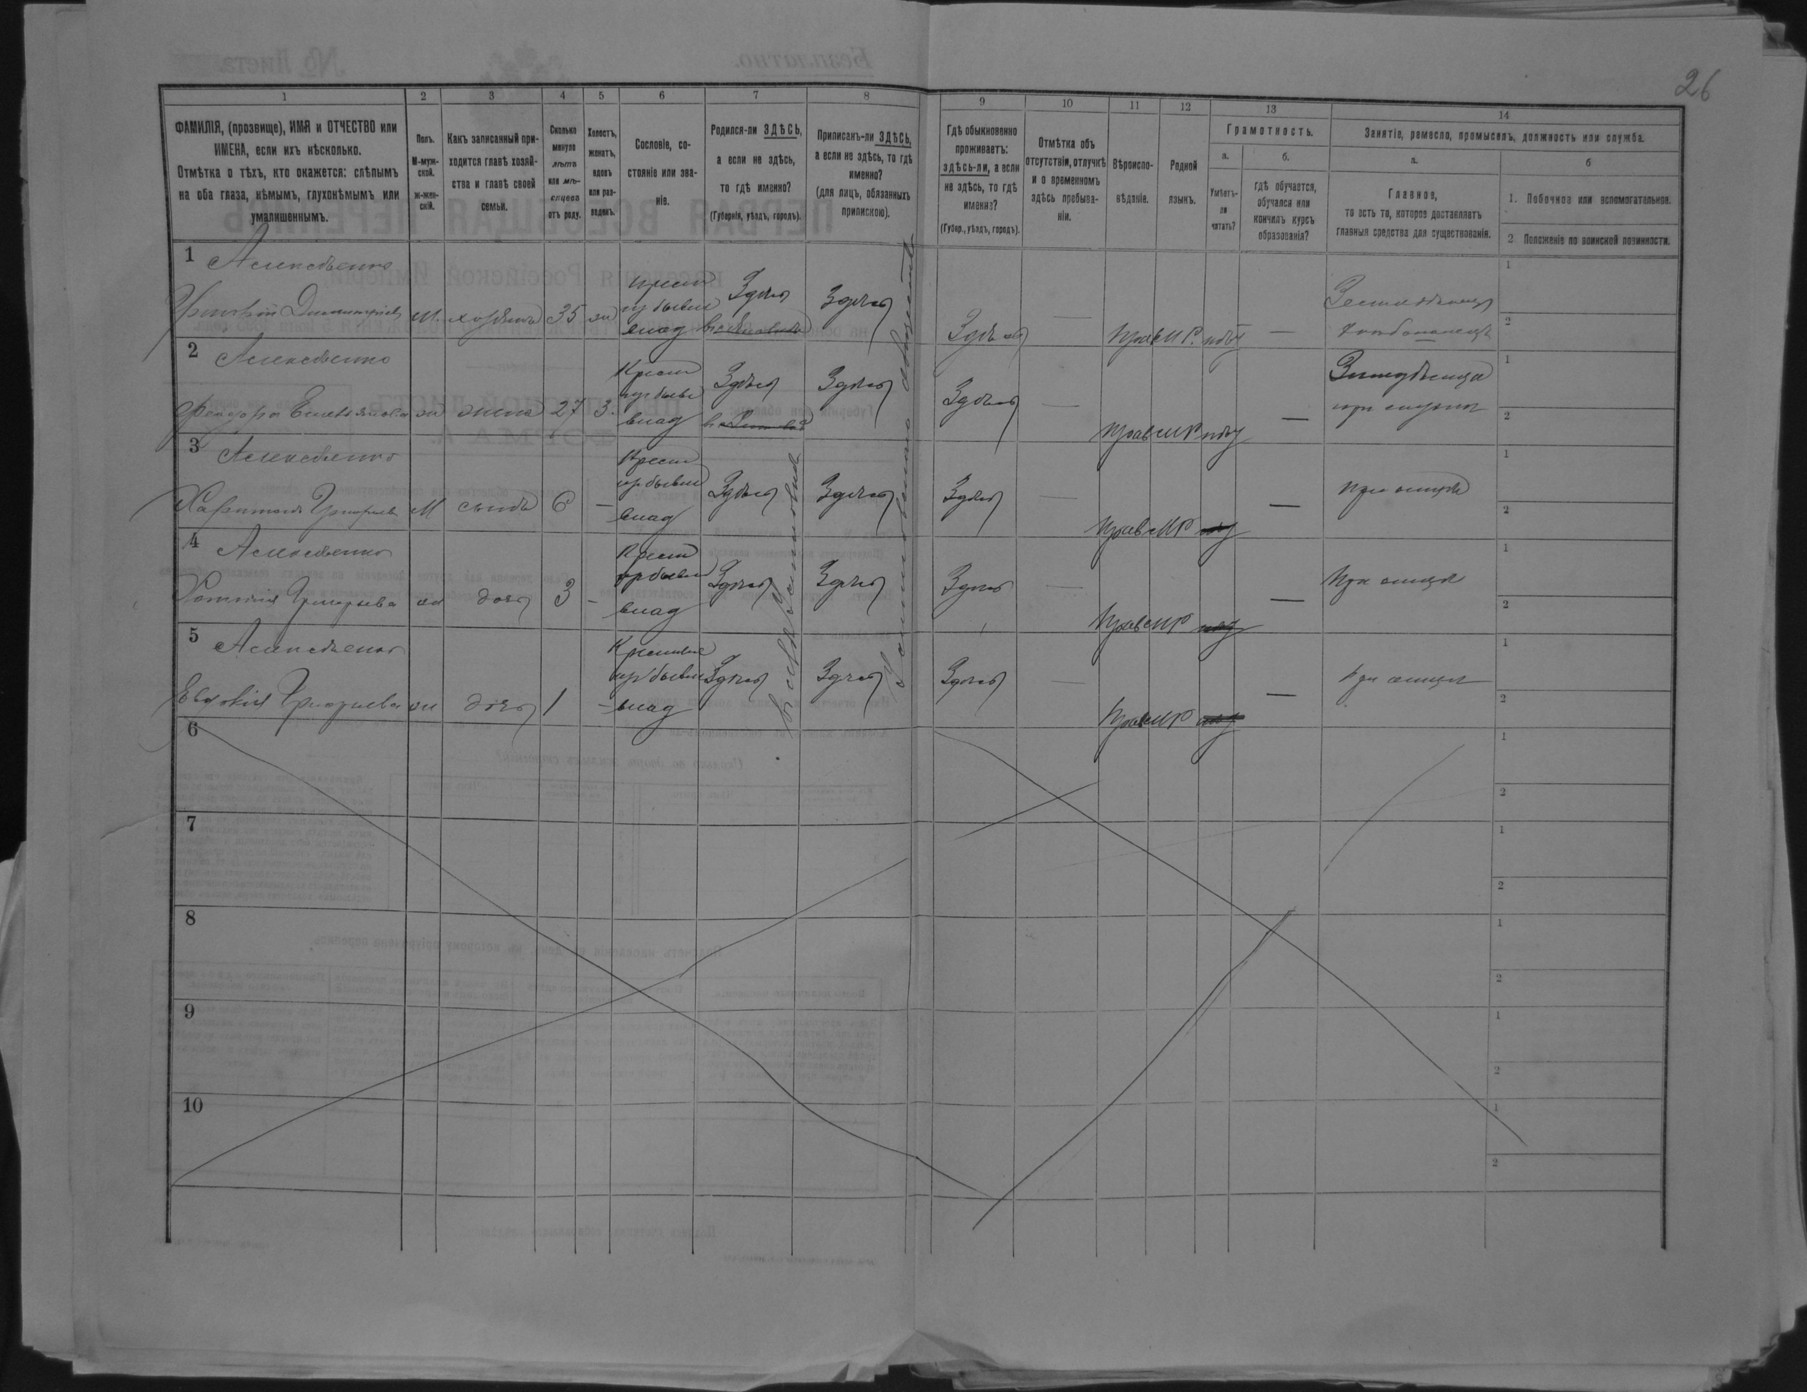 26
1
2
3
4
5
6
7
8
9
10
11
12
13
14
ФАМИЛІЯ, (прозвище), ИМЯ и ОТЧЕСТВО или
ИМЕНА, если ихъ нѣсколько.
Отмѣтка о тѣхъ, кто окажется: слѣпымъ
на оба глаза, нѣмымъ, глухонѣмымъ или
умалишеннымъ.
Полъ.
М-муж-
ской.
ж-жен-
скій.
Какъ записанный при-
ходится главѣ хозяй-
ства и главѣ своей
семьи.
Сколько
минуло
лѣтъ
или мѣ-
сяцевъ
отъ роду.
Холостъ,
женатъ,
вдовъ
или раз-
веденъ.
Сословіе, со-
стояніе или зва-
ніе.
Родился-ли ЗДѢСЬ,
а если не здѣсь,
то гдѣ именно?
(Губернія, уѣздъ, городъ).
Приписанъ-ли ЗДѢСЬ,
а если не здѣсь, то гдѣ
именно?
(для лицъ, обязанныхъ
припискою).
Гдѣ обыкновенно
проживаетъ:
здѣсь-ли, а если
не здѣсь, то гдѣ
именно?
(Губер., уѣздъ, городъ).
Отмѣтка объ
отсутствіи, отлучкѣ
и о временномъ
здѣсь пребыва-
ніи.
Вѣроиспо-
вѣданіе.
Родной
языкъ.
Грамотность.
а.
Умѣетъ-
ли
читать?
б.
гдѣ обучается,
обучался или
кончилъ курсъ
образованія?
Занятіе, ремесло, промыселъ, должность или служба.
а.
Главное,
то есть то, которое доставляетъ
главныя средства для существованія.
б
1. Побочное или вспомогательное.
2. Положеніе по воинской повинности.
1 Алексѣенко
Григорій Димитріевъ м. хозяинъ 35 ж
Крест
изъ бывш
влад
Здѣсь Здѣсь Здѣсь — Прав М Р. нѣтъ —
1
2
2 Алексѣенко
жена 27 з.
Крест
изъ бывш
влад
Здѣсь Здѣсь Здѣсь — Прав М Р нѣтъ —
1
2
3 Алексѣенко
Харитонъ Григорьевъ М сынъ 6 —
Крест
изъ бывш
влад
Здѣсь Здѣсь Здѣсь — Прав М Р —
при отцѣ
1
2
4 Алексѣенко
Григорьева ж дочь 3 —
Крест
изъ бывш
влад
Здѣсь Здѣсь Здѣсь — Прав М Р —
При отцѣ
1
2
5 Алексѣенко
Евдокія Григорьева ж дочь 1 —
изъ бывш
влад
Здѣсь Здѣсь Здѣсь — Прав М Р —
при отцѣ
1
2
6
1
2
7
1
2
8
1
2
9
1
2
10
1
2